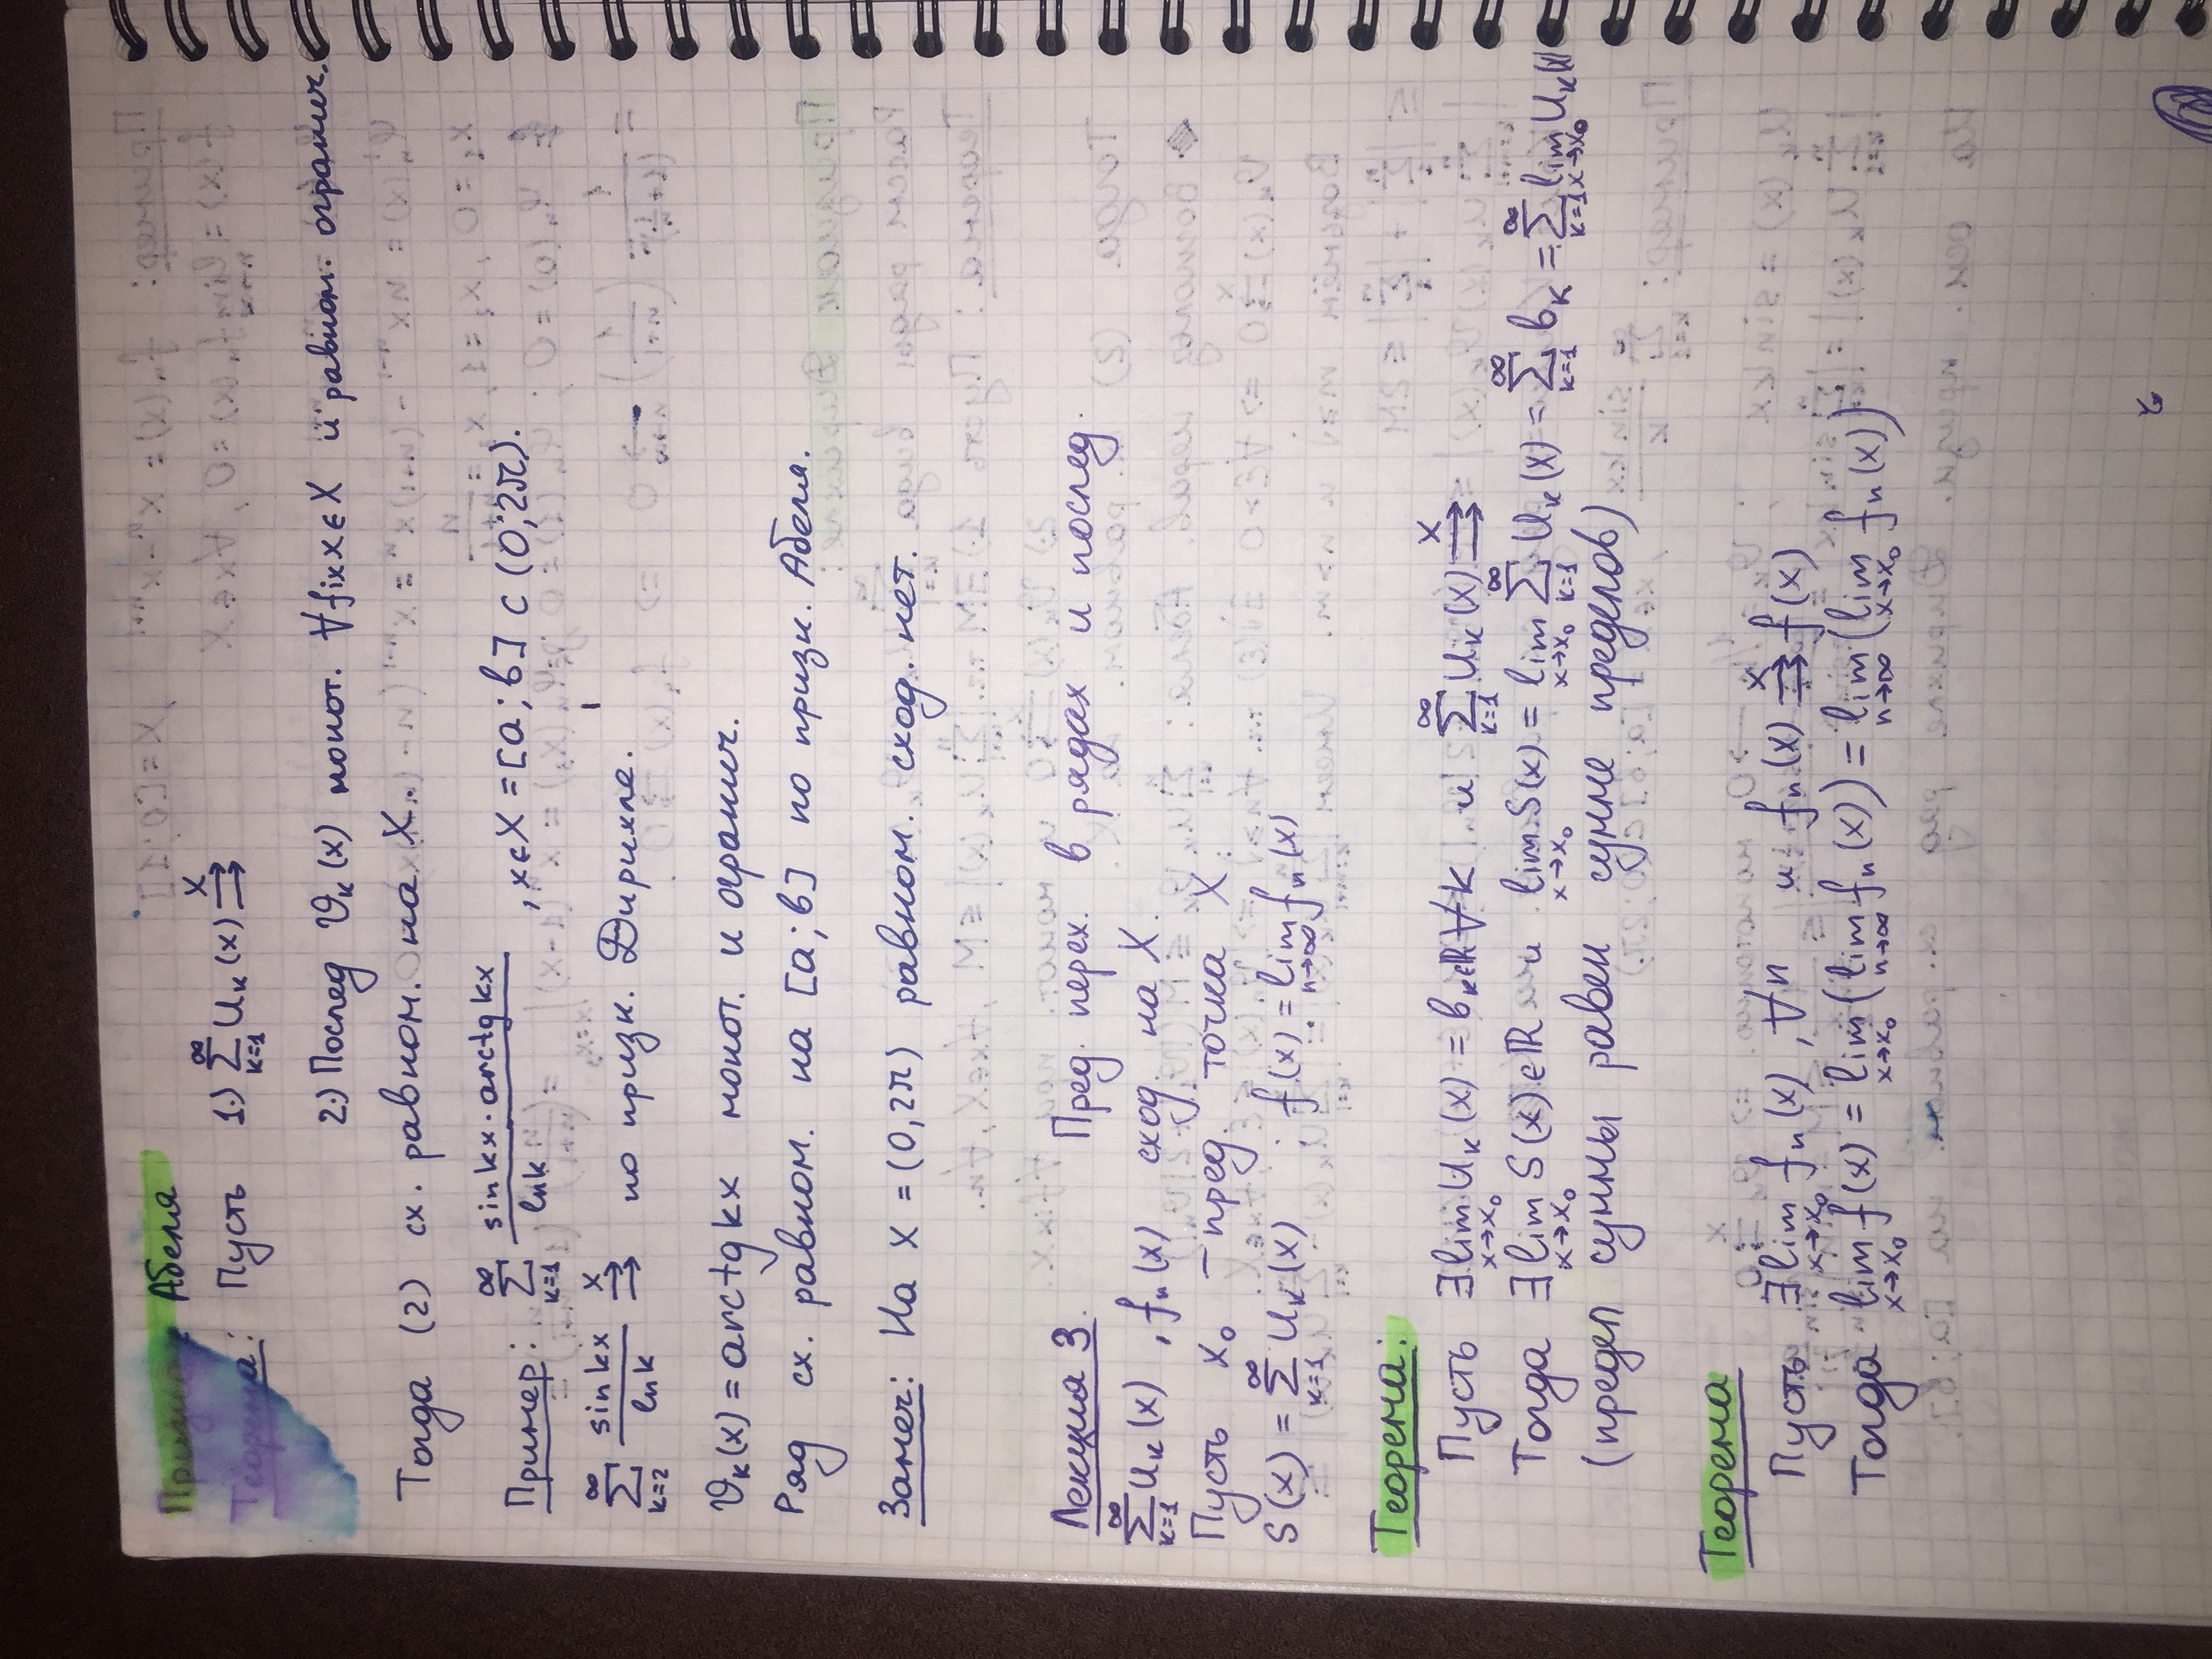 Признак Абеля
Теорема: Пусть 1.) ∞∑k=1 Uₖ(x) ⇉ X
2.) Послед ϑₖ(x) монот. ∀fix x∈X и равном. огранич.
Тогда (2) сх. равном. на X.
Пример: ∞∑k=1 (sin kx · arctg kx)/(ln k), x∈X = [a;b] ⊂ (0;2π).
∞∑k=2 (sin kx)/(ln k) ⇉ X по призк. Дирихле.
ϑₖ(x) = arctg kx монот. и огранич.
Ряд сх. равном. на [a;b] по призн. Абеля.
Замеч: На X = (0,2π) равном. сход. нет.
Лекция 3. Пред. перех. в рядах и послед.
∞∑k=1 Uₖ(x), fₙ(x) сход. на X.
Пусть x₀ – пред. точка X.
S(x) = ∞∑k=1 Uₖ(x) ; f(x) = lim n→∞ fₙ(x)
Теорема:
Пусть ∃ lim x→x₀ Uₖ(x) = bₖ∈ℝ ∀k и ∞∑k=1 Uₖ(x) ⇉ X
Тогда ∃ lim x→x₀ S(x) ∈ ℝ и lim x→x₀ S(x) = lim x→x₀ ∞∑k=1 Uₖ(x) = ∞∑k=1 bₖ = ∞∑k=1 lim x→x₀ Uₖ(x)
(предел суммы равен сумме пределов)
Теорема
Пусть ∃ lim x→x₀ fₙ(x), ∀n и fₙ(x) ⇉ X f(x)
Тогда lim x→x₀ f(x) = lim x→x₀ (lim n→∞ fₙ(x)) = lim n→∞ (lim x→x₀ fₙ(x))